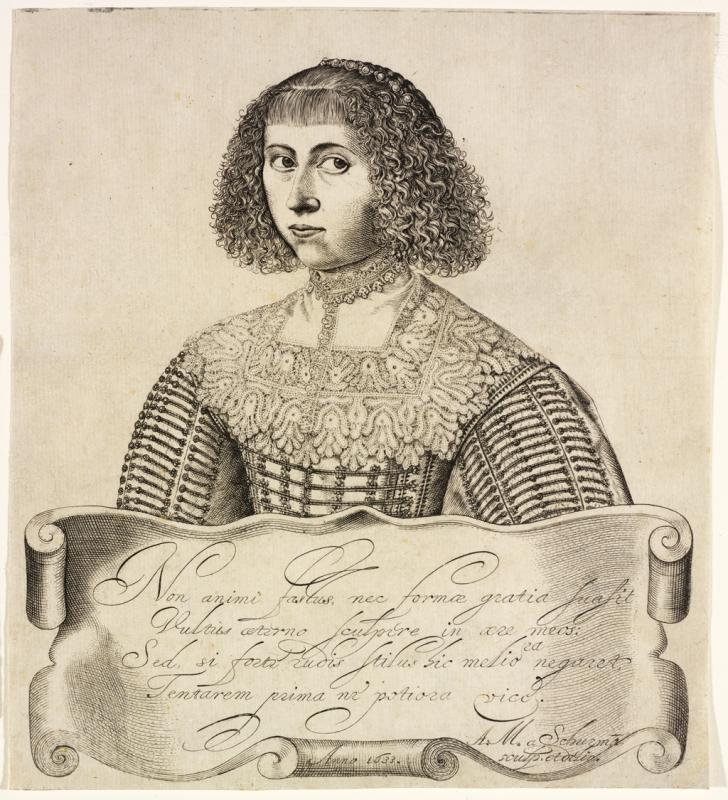 Non animi fastus, nec formæ gratia suasit
Vultus æterno sculpere in ære meos:
Sed, si forte rudis stilus hic meliora negaret,
Tentarem prima ne potiora vice.
A.M. a Schurmā
sculp. et delin.
Anno 1633.